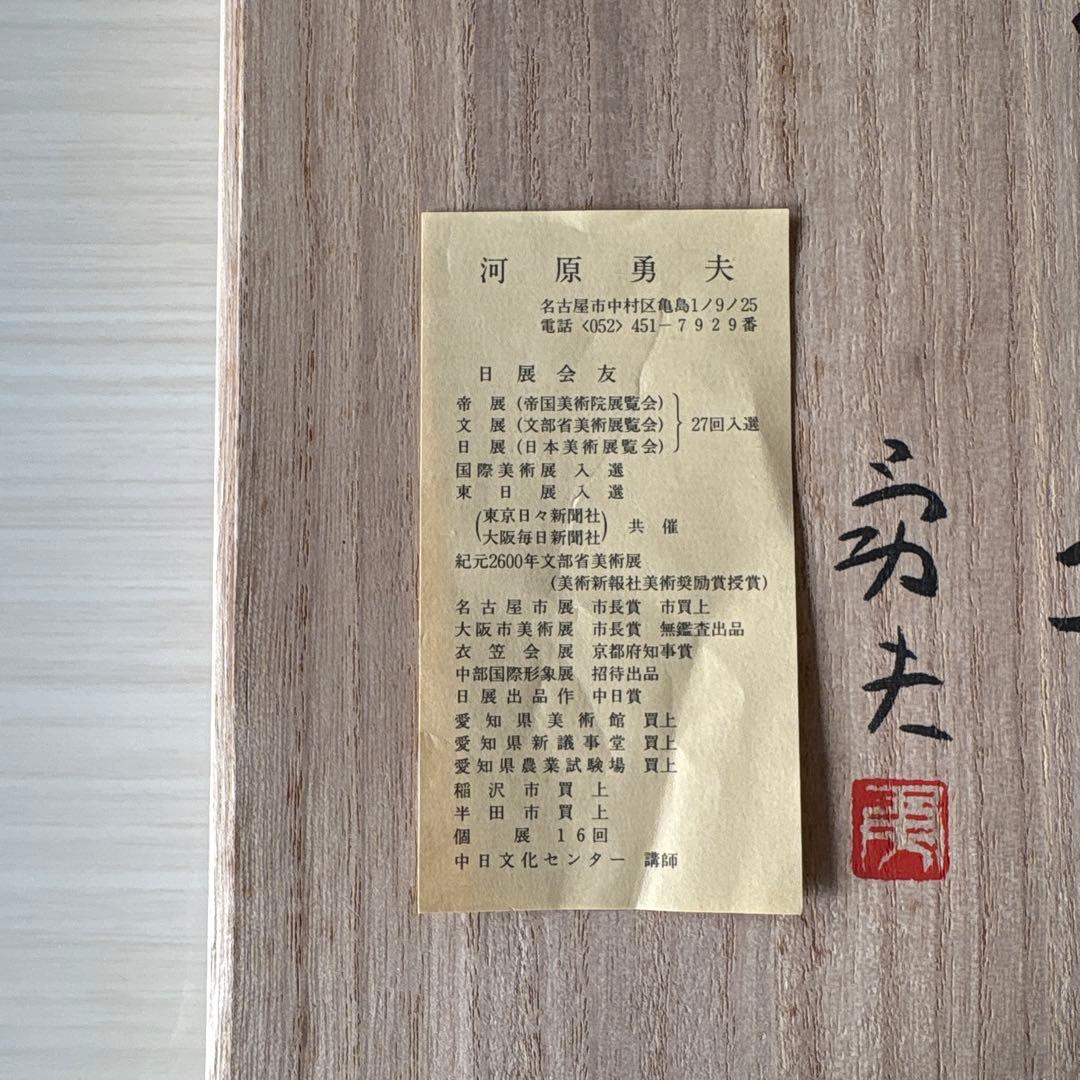 河原勇夫
名古屋市中村区亀島1ノ9ノ25
電話〈052〉451－7929番
日展会友
帝展(帝国美術院展覧会)
文展(文部省美術展覧会) 27回入選
日展(日本美術展覧会)
国際美術展 入選
東日展入選
(東京日々新聞社
大阪毎日新聞社) 共催
紀元2600年文部省美術展
(美術新報社美術奨励賞授賞)
名古屋市展 市長賞 市買上
大阪市美術展 市長賞 無鑑査出品
衣笠会展 京都府知事賞
中部国際形象展 招待出品
日展出品作 中日賞
愛知県美術館 買上
愛知県新議事堂 買上
愛知県農業試験場 買上
稲沢市買上
半田市買上
個展 16回
中日文化センター 講師
夫